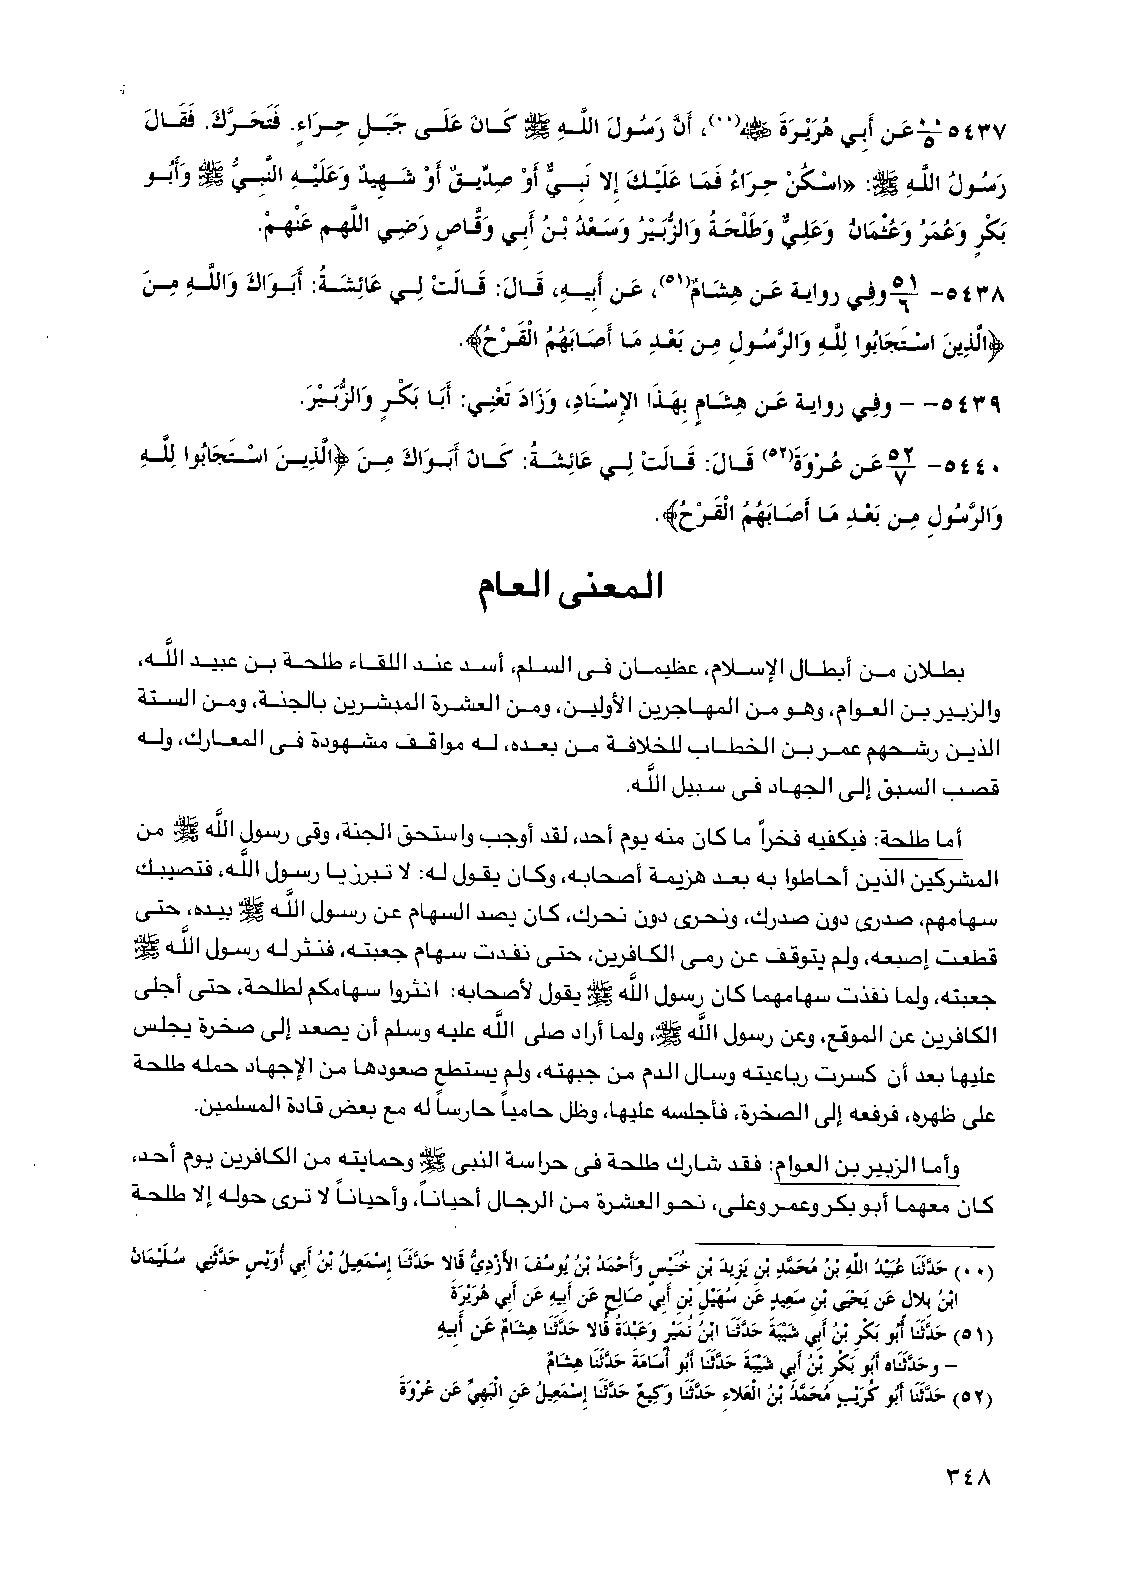 ٥٤٣٧- ٥٠/٥ عَن أَبِي هُرَيْرَةَ ﷺ(٠٠)، أَنَّ رَسُولَ اللَّهِ ﷺ كَانَ عَلَى جَبَلِ حِرَاءٍ. فَتَحَرَّكَ. فَقَالَ
رَسُولُ اللَّهِ ﷺ: «اسْكُنْ حِرَاءُ فَمَا عَلَيْكَ إِلا نَبِيٌّ أَوْ صِدِّيقٌ أَوْ شَهِيدٌ وَعَلَيْهِ النَّبِيُّ ﷺ وَأَبُو
بَكْرٍ وَعُمَرُ وَعُثْمَانُ وَعَلِيٌّ وَطَلْحَةُ وَالزُّبَيْرُ وَسَعْدُ بْنُ أَبِي وَقَّاصٍ رَضِي اللَّهم عَنْهمْ.
٥٤٣٨- ٥١/٦ وفِي رواية عَن هِشَامٍ(٥١)، عَن أَبِيهِ، قَالَ: قَالَتْ لِي عَائِشَةُ: أَبَوَاكَ وَاللَّهِ مِنَ
﴿الَّذِينَ اسْتَجَابُوا لِلَّهِ وَالرَّسُولِ مِن بَعْدِ مَا أَصَابَهُمُ الْقَرْحُ﴾.
٥٤٣٩- - وفِي رواية عَن هِشَامٍ بِهَذَا الإِسْنَادِ، وَزَادَ تَعْنِي: أَبَا بَكْرٍ وَالزُّبَيْرَ.
٥٤٤٠- ٥٢/٧ عَن عُرْوَةَ(٥٢) قَالَ: قَالَتْ لِي عَائِشَةُ: كَانَ أَبَوَاكَ مِنَ ﴿الَّذِينَ اسْتَجَابُوا لِلَّهِ
وَالرَّسُولِ مِن بَعْدِ مَا أَصَابَهُمُ الْقَرْحُ﴾.
المعنى العام
بطلان من أبطال الإسلام، عظيمان فى السلم، أسد عند اللقاء طلحة بن عبيد اللَّه،
والزبير بن العوام، وهو من المهاجرين الأولين، ومن العشرة المبشرين بالجنة، ومن الستة
الذين رشحهم عمر بن الخطاب للخلافة من بعده، له مواقف مشهودة فى المعارك، وله
قصب السبق إلى الجهاد فى سبيل اللَّه.
أما طلحة: فيكفيه فخراً ما كان منه يوم أحد، لقد أوجب واستحق الجنة، وقى رسول اللَّه ﷺ من
المشركين الذين أحاطوا به بعد هزيمة أصحابه، وكان يقول له: لا تبرز يا رسول اللَّه، فتصيبك
سهامهم، صدرى دون صدرك، ونحرى دون نحرك، كان يصد السهام عن رسول اللَّه ﷺ بيده، حتى
قطعت إصبعه، ولم يتوقف عن رمى الكافرين، حتى نفدت سهام جعبته، فنثر له رسول اللَّه ﷺ
جعبته، ولما نفذت سهامهما كان رسول اللَّه ﷺ يقول لأصحابه: انثروا سهامكم لطلحة، حتى أجلى
الكافرين عن الموقع، وعن رسول اللَّه ﷺ، ولما أراد صلى اللَّه عليه وسلم أن يصعد إلى صخرة يجلس
عليها بعد أن كسرت رباعيته وسال الدم من جبهته، ولم يستطع صعودها من الإجهاد حمله طلحة
على ظهره، فرفعه إلى الصخرة، فأجلسه عليها، وظل حامياً حارساً له مع بعض قادة المسلمين.
وأما الزبير بن العوام: فقد شارك طلحة فى حراسة النبى ﷺ وحمايته من الكافرين يوم أحد،
كان معهما أبو بكر وعمر وعلى، نحو العشرة من الرجال أحياناً، وأحياناً لا ترى حوله إلا طلحة
(٠٠) حَدَّثَنَا عُبَيْدُ اللَّهِ بْنُ مُحَمَّدِ بْنِ يَزِيدَ بْنِ خُنَيْسٍ وَأَحْمَدُ بْنُ يُوسُفَ الأَزْدِيُّ قَالا حَدَّثَنَا إِسْمَعِيلُ بْنُ أَبِي أُوَيْسٍ حَدَّثَنِي سُلَيْمَانُ
ابْنُ بِلالٍ عَن يَحْيَى بْنِ سَعِيدٍ عَن سُهَيْلِ بْنِ أَبِي صَالِحٍ عَن أَبِيهِ عَن أَبِي هُرَيْرَةَ
(٥١) حَدَّثَنَا أَبُو بَكْرِ بْنُ أَبِي شَيْبَةَ حَدَّثَنَا ابْنُ نُمَيْرٍ وَعَبْدَةُ قَالا حَدَّثَنَا هِشَامٌ عَن أَبِيهِ
- وحَدَّثَنَاه أَبُو بَكْرِ بْنُ أَبِي شَيْبَةَ حَدَّثَنَا أَبُو أُسَامَةَ حَدَّثَنَا هِشَامٌ
(٥٢) حَدَّثَنَا أَبُو كُرَيْبٍ مُحَمَّدُ بْنُ الْعَلاءِ حَدَّثَنَا وَكِيعٌ حَدَّثَنَا إِسْمَعِيلُ عَنِ الْبَهِيِّ عَن عُرْوَةَ
٣٤٨